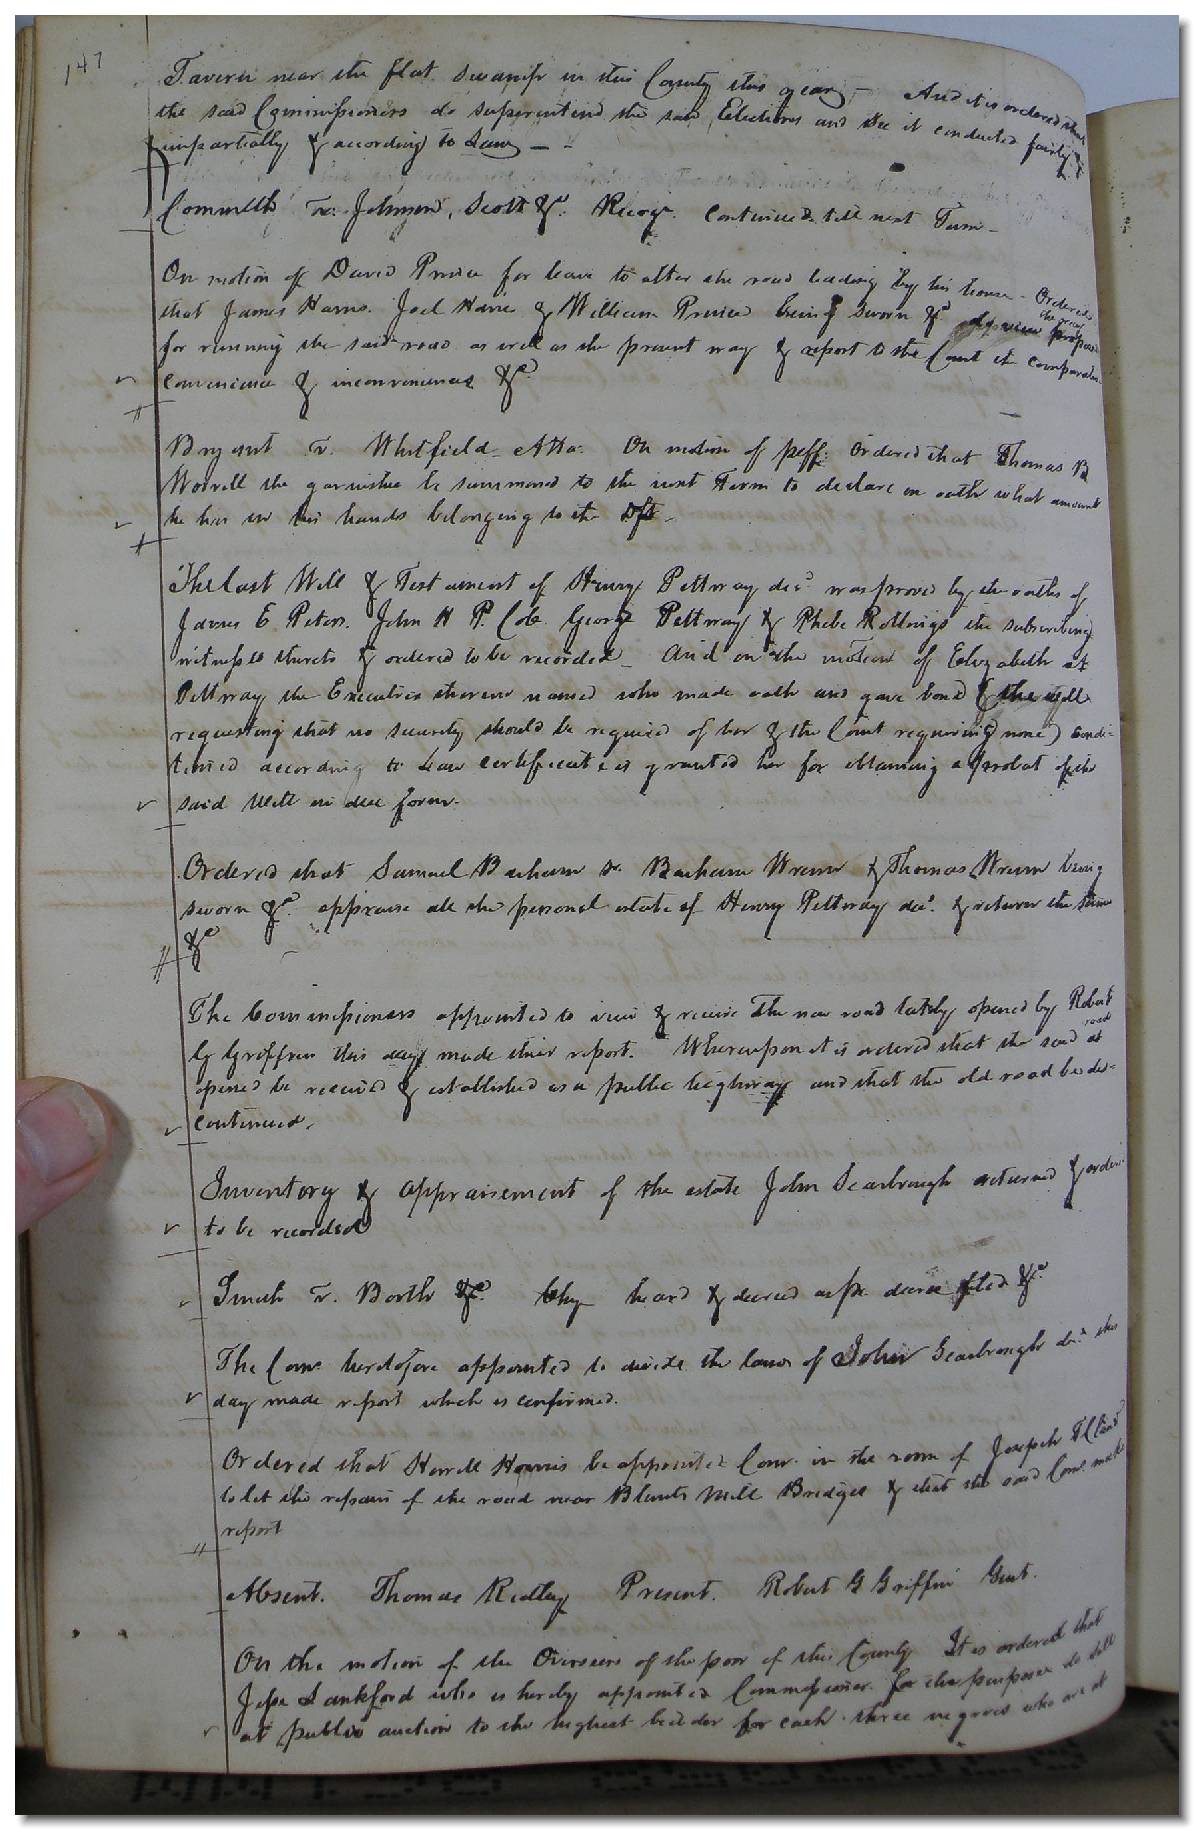 147
Tavern near the flat swamp in this County this year - And it is ordered that
the said Commissioners do superintend the said Elections and see it conducted fairly &
impartially & according to Law - -
Commlth vs. Johnson, Scott &c. Recog. Continued till next Term -
On motion of David Prince for leave to alter the road leading by his house - Ordered
that James Harris. Joel Harris & William Prince being sworn &c the way proposed
for running the said road as well as the present way & report to the Court it comparative
convenience & inconvenience &c
Bryant vs. Whitfield Atta. On motion of plff. Ordered that Thomas B
Worrell the garnishee be summoned to the next Term to declare on oath what amount
he has in his hands belonging to the Dft -
The last Will & Testament of Henry Pettway decd was proved by the oaths of
James E Peters. John H P. Cobb George Pettway & Phebe Rollings the subscribing
witnesses thereto & ordered to be recorded - And on the motion of Elizabeth
Pettway the Executrix therein named who made oath and gave bond (the will
requesting that no security should be required of her & the Court requiring none) condi-
tioned according to Law certificate is granted her for obtaining a probat of the
said Will in due form.
Ordered that Samuel Barham Barham Wrenn & Thomas Wrenn being
sworn &c. appraise all the personal estate of Henry Pettway decd. & return the same
&c
The Commissioners appointed to view & receive the new road lately opened by Robert
G Griffin this day made their report. Whereupon it is ordered that the said road as
opened be received & established as a public highway and that the old road be dis-
continued.
Inventory & appraisement of the estate John Scarbrough returned & order
to be recorded
Smith vs. Booth &c. Chy heard & decreed as pr. decree filed &c.
The Comrs heretofore appointed to divide the lands of John Scarbrough decd. this
day made report which is confirmed.
Ordered that Howell Harris be appointed Comr. in the room of Joseph T Claud
to let the repairs of the road near Blunts Mill Bridges & that the said Comr. make
report
Absent. Thomas Ridley Present. Robert G Griffin Gent.
On the motion of the Overseers of the poor of this County It is ordered that
Jesse Lankford who is hereby appointed Commissioner for the purpose do sell
at public auction to the highest bidder for cash three negroes who are at